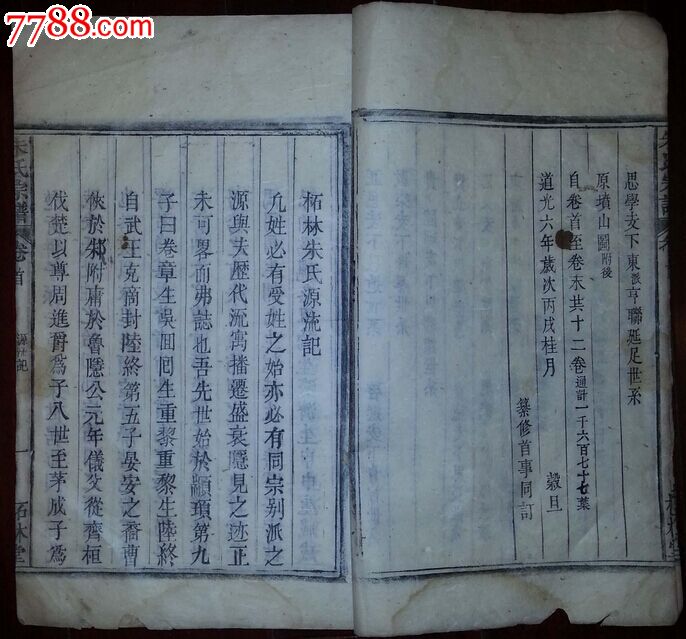 7788.com
思學支下東派亨聯延足世系
原墳山圖附後
自卷首至卷末共十二卷通計一千六百七十七葉
道光六年歲次丙戌桂月 穀旦
纂修首事同訂
柘林朱氏源流記
凡姓必有受姓之始亦必有同宗别派之
源與夫歷代流寓播遷盛衰隱見之迹正
未可畧而弗誌也吾先世始於顓頊第九
子曰卷章生吳回回生重黎重黎生陸終
自武王克商封陸終第五子晏安之裔曹
俠於邾附庸於魯隱公元年儀父從齊桓
伐楚以尊周進爵為子八世至茅成子為
朱氏宗譜 卷首 源流記 一 柘林堂